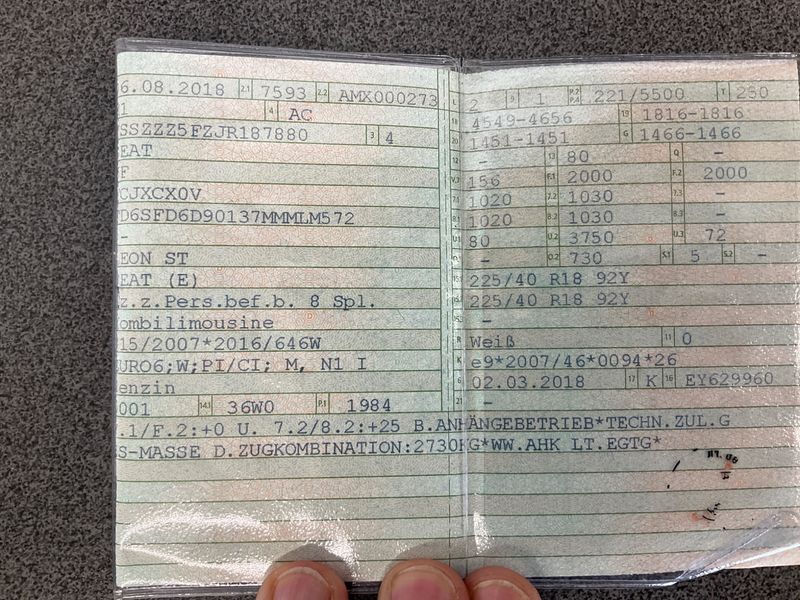 6.08.2018 2.1 7593 2.2 AMX000273
1 4 AC
SSZZZ5FZJR187880 3 4
EAT
F
CJXCX0V
D6SFD6D90137MMMLM572
-
EON ST
EAT (E)
z.z.Pers.bef.b. 8 Spl.
ombilimousine
15/2007*2016/646W
URO6;W;PI/CI; M, N1 I
enzin
001 14.1 36W0 P.1 1984
.1/F.2:+0 U. 7.2/8.2:+25 B.ANHÄNGEBETRIEB*TECHN.ZUL.G
S-MASSE D.ZUGKOMBINATION:2730KG*WW.AHK LT.EGTG*
L 2 9 1 P.2 P.4 221/5500 T 250
18 4549-4656 19 1816-1816
20 1451-1451 G 1466-1466
12 - 13 80 Q -
V.7 156 F.1 2000 F.2 2000
7.1 1020 7.2 1030 7.3 -
8.1 1020 8.2 1030 8.3 -
U.1 80 U.2 3750 U.3 72
- O.2 730 S.1 5 S.2 -
15.1 225/40 R18 92Y
225/40 R18 92Y
-
R Weiß 11 0
K e9*2007/46*0094*26
6 02.03.2018 17 K 16 EY629960
21 -